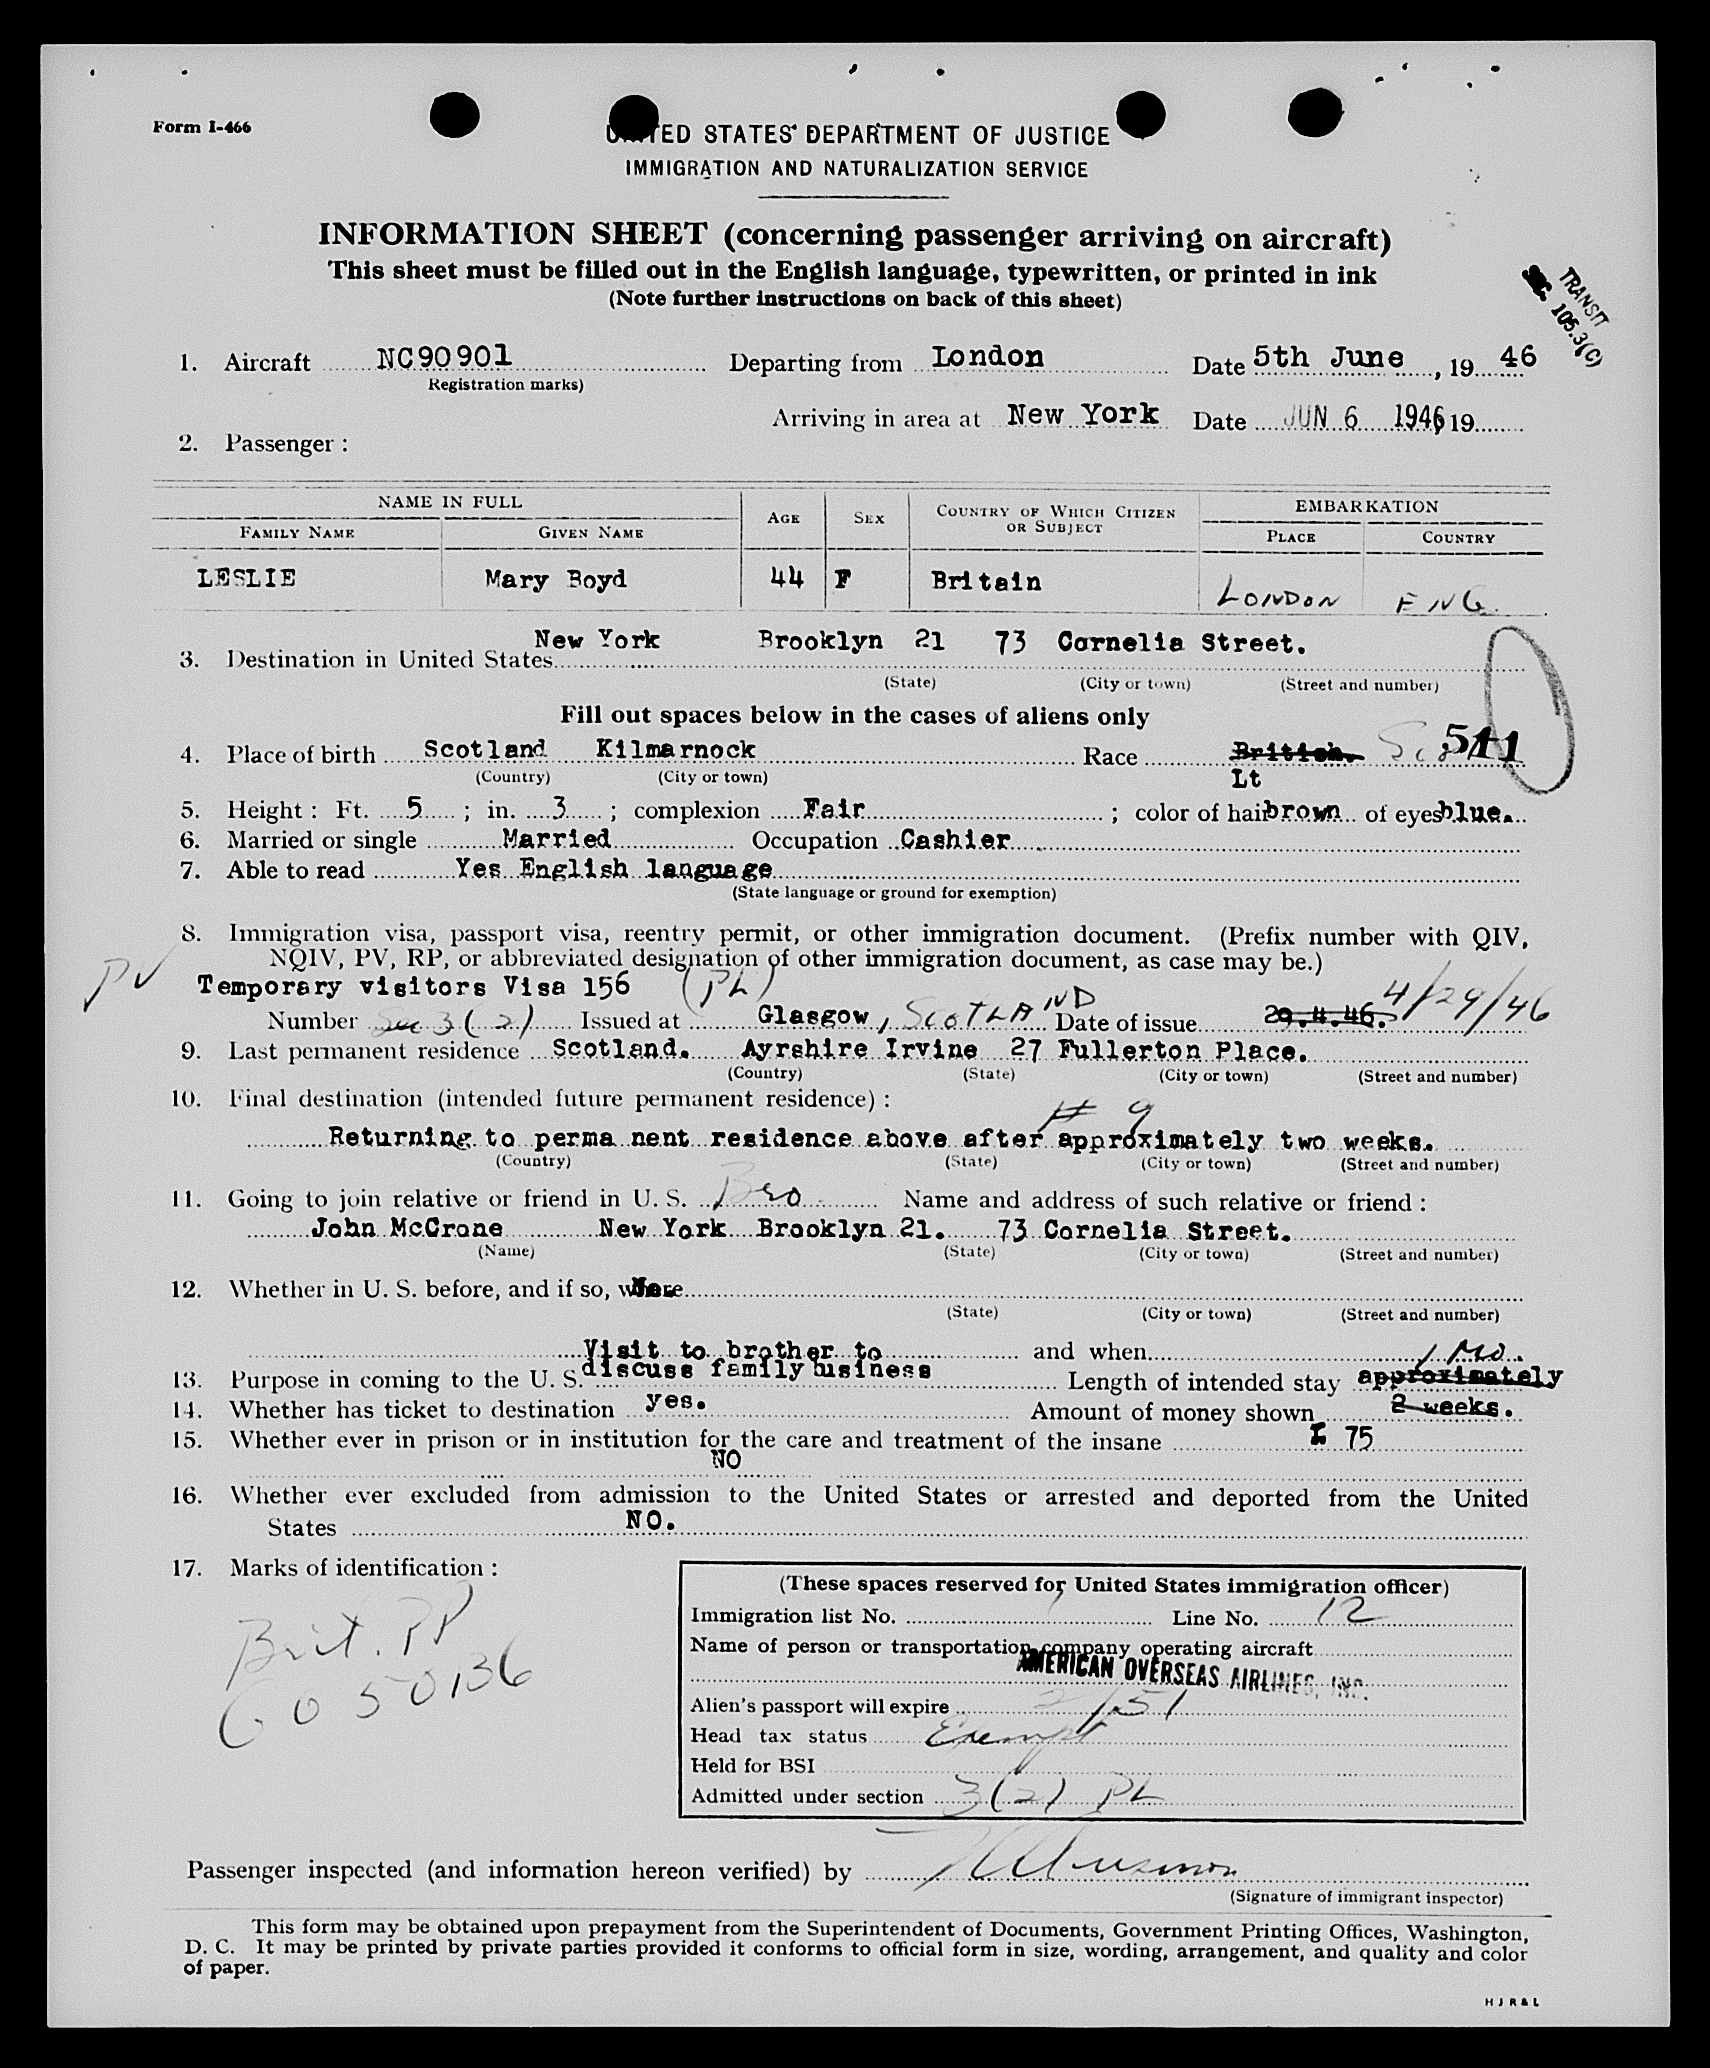 Form I-466
UNITED STATES DEPARTMENT OF JUSTICE
IMMIGRATION AND NATURALIZATION SERVICE
INFORMATION SHEET (concerning passenger arriving on aircraft)
This sheet must be filled out in the English language, typewritten, or printed in ink
(Note further instructions on back of this sheet)
TRANSIT
105.3(C)
1. Aircraft NC90901 Departing from London Date 5th June, 19 46
Registration marks)
Arriving in area at New York Date JUN 6 1946, 19
2. Passenger :
NAME IN FULL AGE SEX COUNTRY OF WHICH CITIZEN OR SUBJECT EMBARKATION
FAMILY NAME GIVEN NAME PLACE COUNTRY
LESLIE Mary Boyd 44 F Britain LONDON ENG.
3. Destination in United States New York Brooklyn 21 73 Cornelia Street.
(State) (City or town) (Street and number)
Fill out spaces below in the cases of aliens only
511
4. Place of birth Scotland Kilmarnock Race British.
(Country) (City or town) Lt
5. Height : Ft. 5 ; in. 3 ; complexion Fair ; color of hair brown of eyes blue.
6. Married or single Married Occupation Cashier
7. Able to read Yes English language
(State language or ground for exemption)
8. Immigration visa, passport visa, reentry permit, or other immigration document. (Prefix number with QIV,
NQIV, PV, RP, or abbreviated designation of other immigration document, as case may be.)
PV Temporary visitors Visa 156 (PL) 4/29/46
Number Sec 3 (2) Issued at Glasgow, SCOTLAND Date of issue 29.4.46.
9. Last permanent residence Scotland. Ayrshire Irvine 27 Fullerton Place.
(Country) (State) (City or town) (Street and number)
10. Final destination (intended future permanent residence) :
# 9
Returning to permanent residence above after approximately two weeks.
(Country) (State) (City or town) (Street and number)
11. Going to join relative or friend in U. S. Bro Name and address of such relative or friend :
John McCrone New York Brooklyn 21. 73 Cornelia Street.
(Name) (State) (City or town) (Street and number)
12. Whether in U. S. before, and if so, where
(State) (City or town) (Street and number)
Visit to brother to and when 1 Mo.
13. Purpose in coming to the U. S. discuss family business Length of intended stay approximately
14. Whether has ticket to destination yes. Amount of money shown 2 weeks.
15. Whether ever in prison or in institution for the care and treatment of the insane £ 75
NO
16. Whether ever excluded from admission to the United States or arrested and deported from the United
States NO.
17. Marks of identification :
Brit. PP
C 050136
(These spaces reserved for United States immigration officer)
Immigration list No. Line No. 12
Name of person or transportation company operating aircraft
AMERICAN OVERSEAS AIRLINES, INC.
Alien's passport will expire 2/51
Head tax status Exempt
Held for BSI
Admitted under section 3(2) PL
Passenger inspected (and information hereon verified) by
(Signature of immigrant inspector)
This form may be obtained upon prepayment from the Superintendent of Documents, Government Printing Offices, Washington,
D. C. It may be printed by private parties provided it conforms to official form in size, wording, arrangement, and quality and color
of paper.
H J R & L